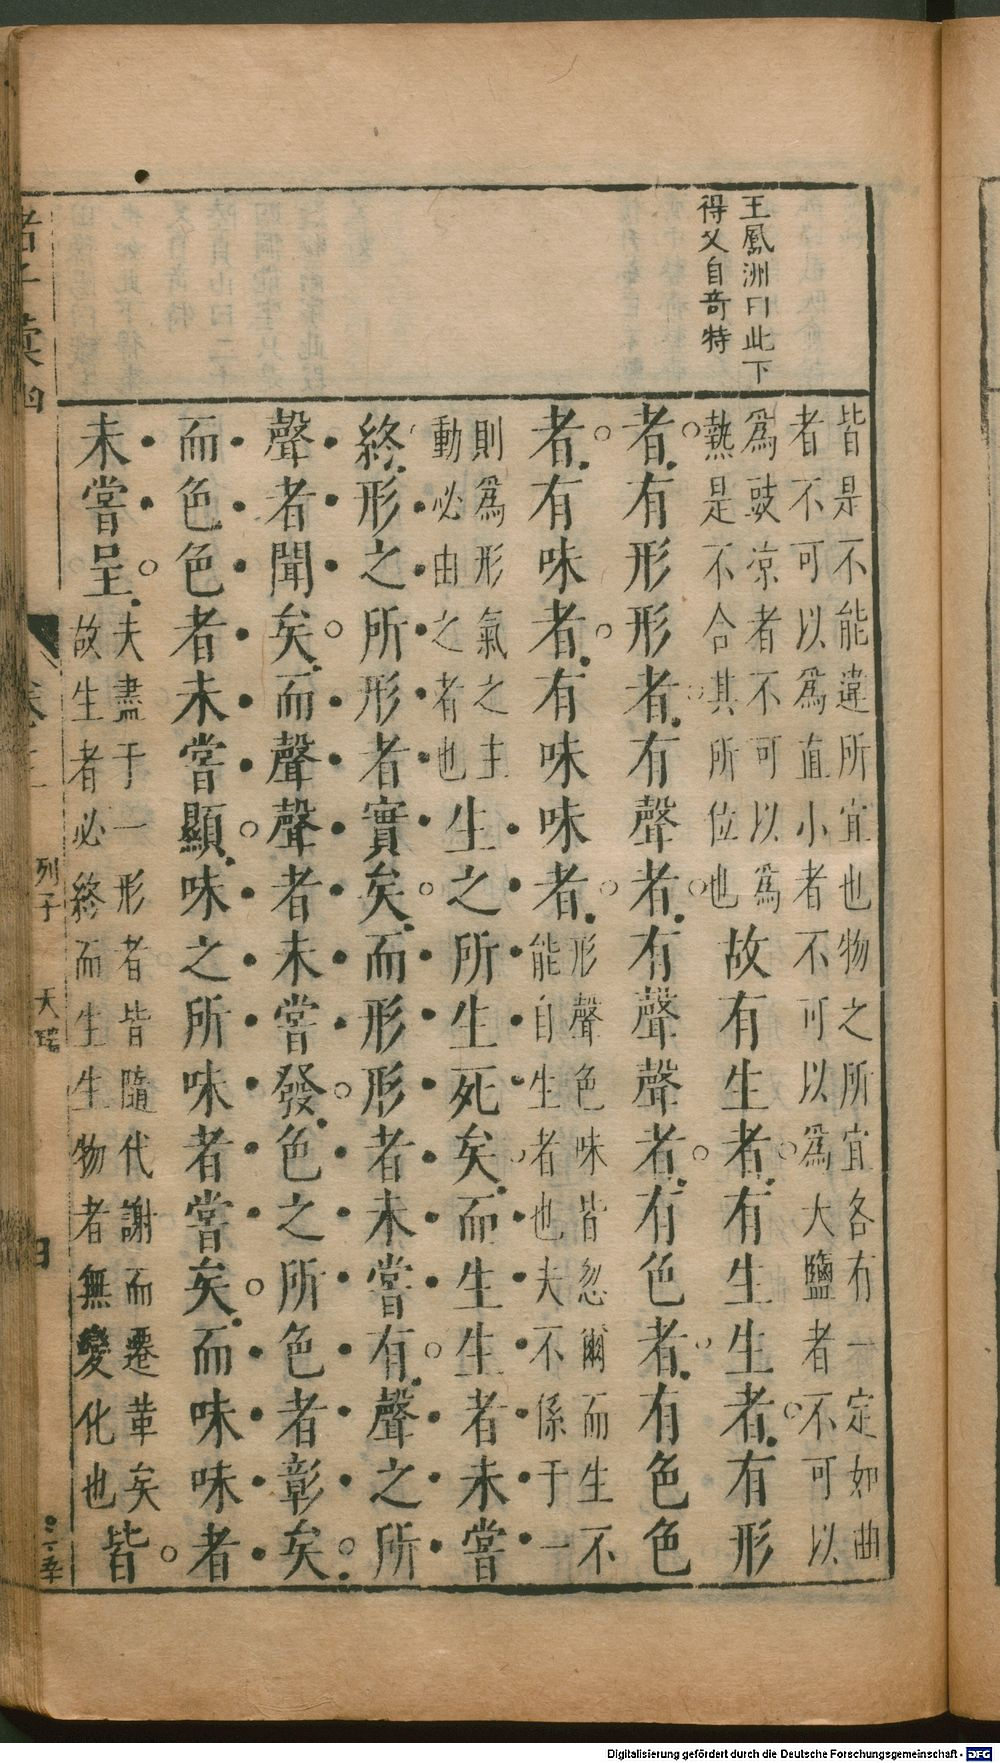 王鳳洲曰此下
得父自奇特
皆是不能違所宜也物之所宜各有一定如曲
者不可以為直小者不可以為大鹽者不可以
為豉凉者不可以為
熱是不合其所位也
故有生者有生生者有形
者有形形者有聲者有聲聲者有色者有色色
者有味者有味味者
形聲色味皆忽爾而生不
能自生者也夫不係于一
則為形氣之主
動必由之者也
生之所生死矣而生生者未嘗
終形之所形者實矣而形形者未嘗有聲之所
聲者聞矣而聲聲者未嘗發色之所色者彰矣
而色色者未嘗顯味之所味者嘗矣而味味者
未嘗呈
夫盡于一形者皆隨代謝而遷革矣
故生者必終而生生物者無變化也
皆
諸子彙函
卷之
列子 天瑞
Digitalisierung gefördert durch die Deutsche Forschungsgemeinschaft - DFG